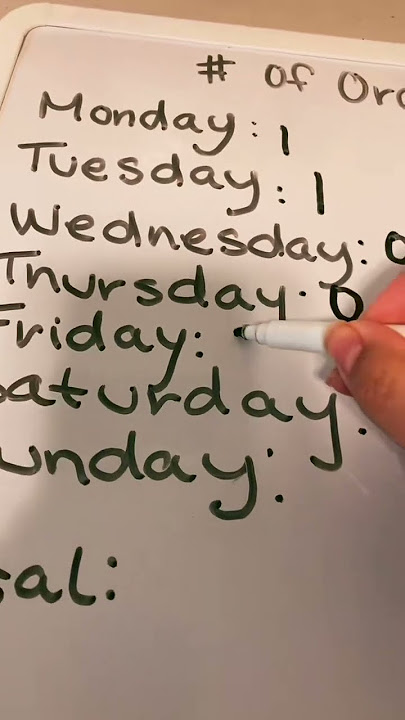 # of Ord
Monday: 1
Tuesday: 1
Wednesday: 0
Thursday: 0
Friday:
Saturday:
Sunday: